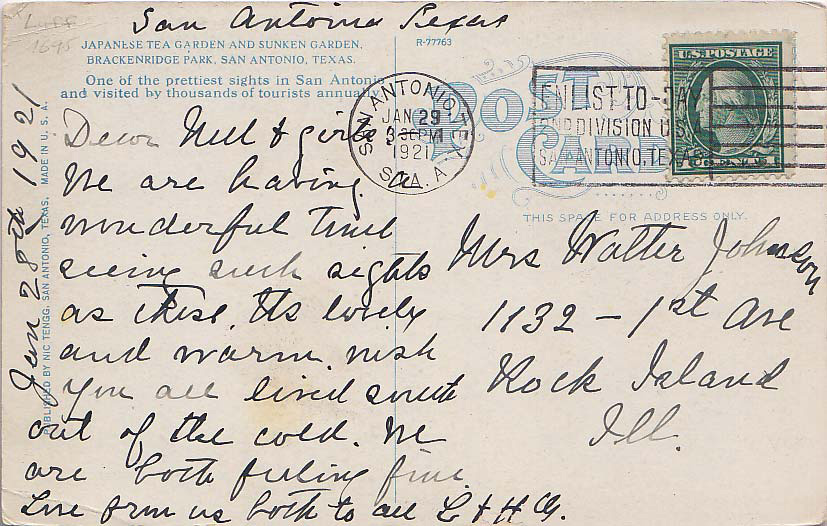 San Antonio Texas
LIFF
1695
JAPANESE TEA GARDEN AND SUNKEN GARDEN,
BRACKENRIDGE PARK, SAN ANTONIO, TEXAS.
One of the prettiest sights in San Antonio
and visited by thousands of tourists annually.
R-77763
Jan 28th 1921
PUBLISHED BY NIC TENGG, SAN ANTONIO, TEXAS. MADE IN U. S. A.
Dear Nell & girls
We are having
wonderful time
seeing such sights
as these. Its lovely
and warm. wish
you all lived south
out of the cold. We
are both feeling fine.
Love from us both to all L & H G.
POST CARD
SAN ANTONIO, TEX.
JAN 29
3-30 PM
1921
STA. A
ENLIST TO-DAY
2ND DIVISION U.S.
SAN ANTONIO, TEXAS
U.S. POSTAGE
CENTS
THIS SPACE FOR ADDRESS ONLY.
Mrs Walter Johnson
1132 - 1st Ave
Rock Island
Ill.